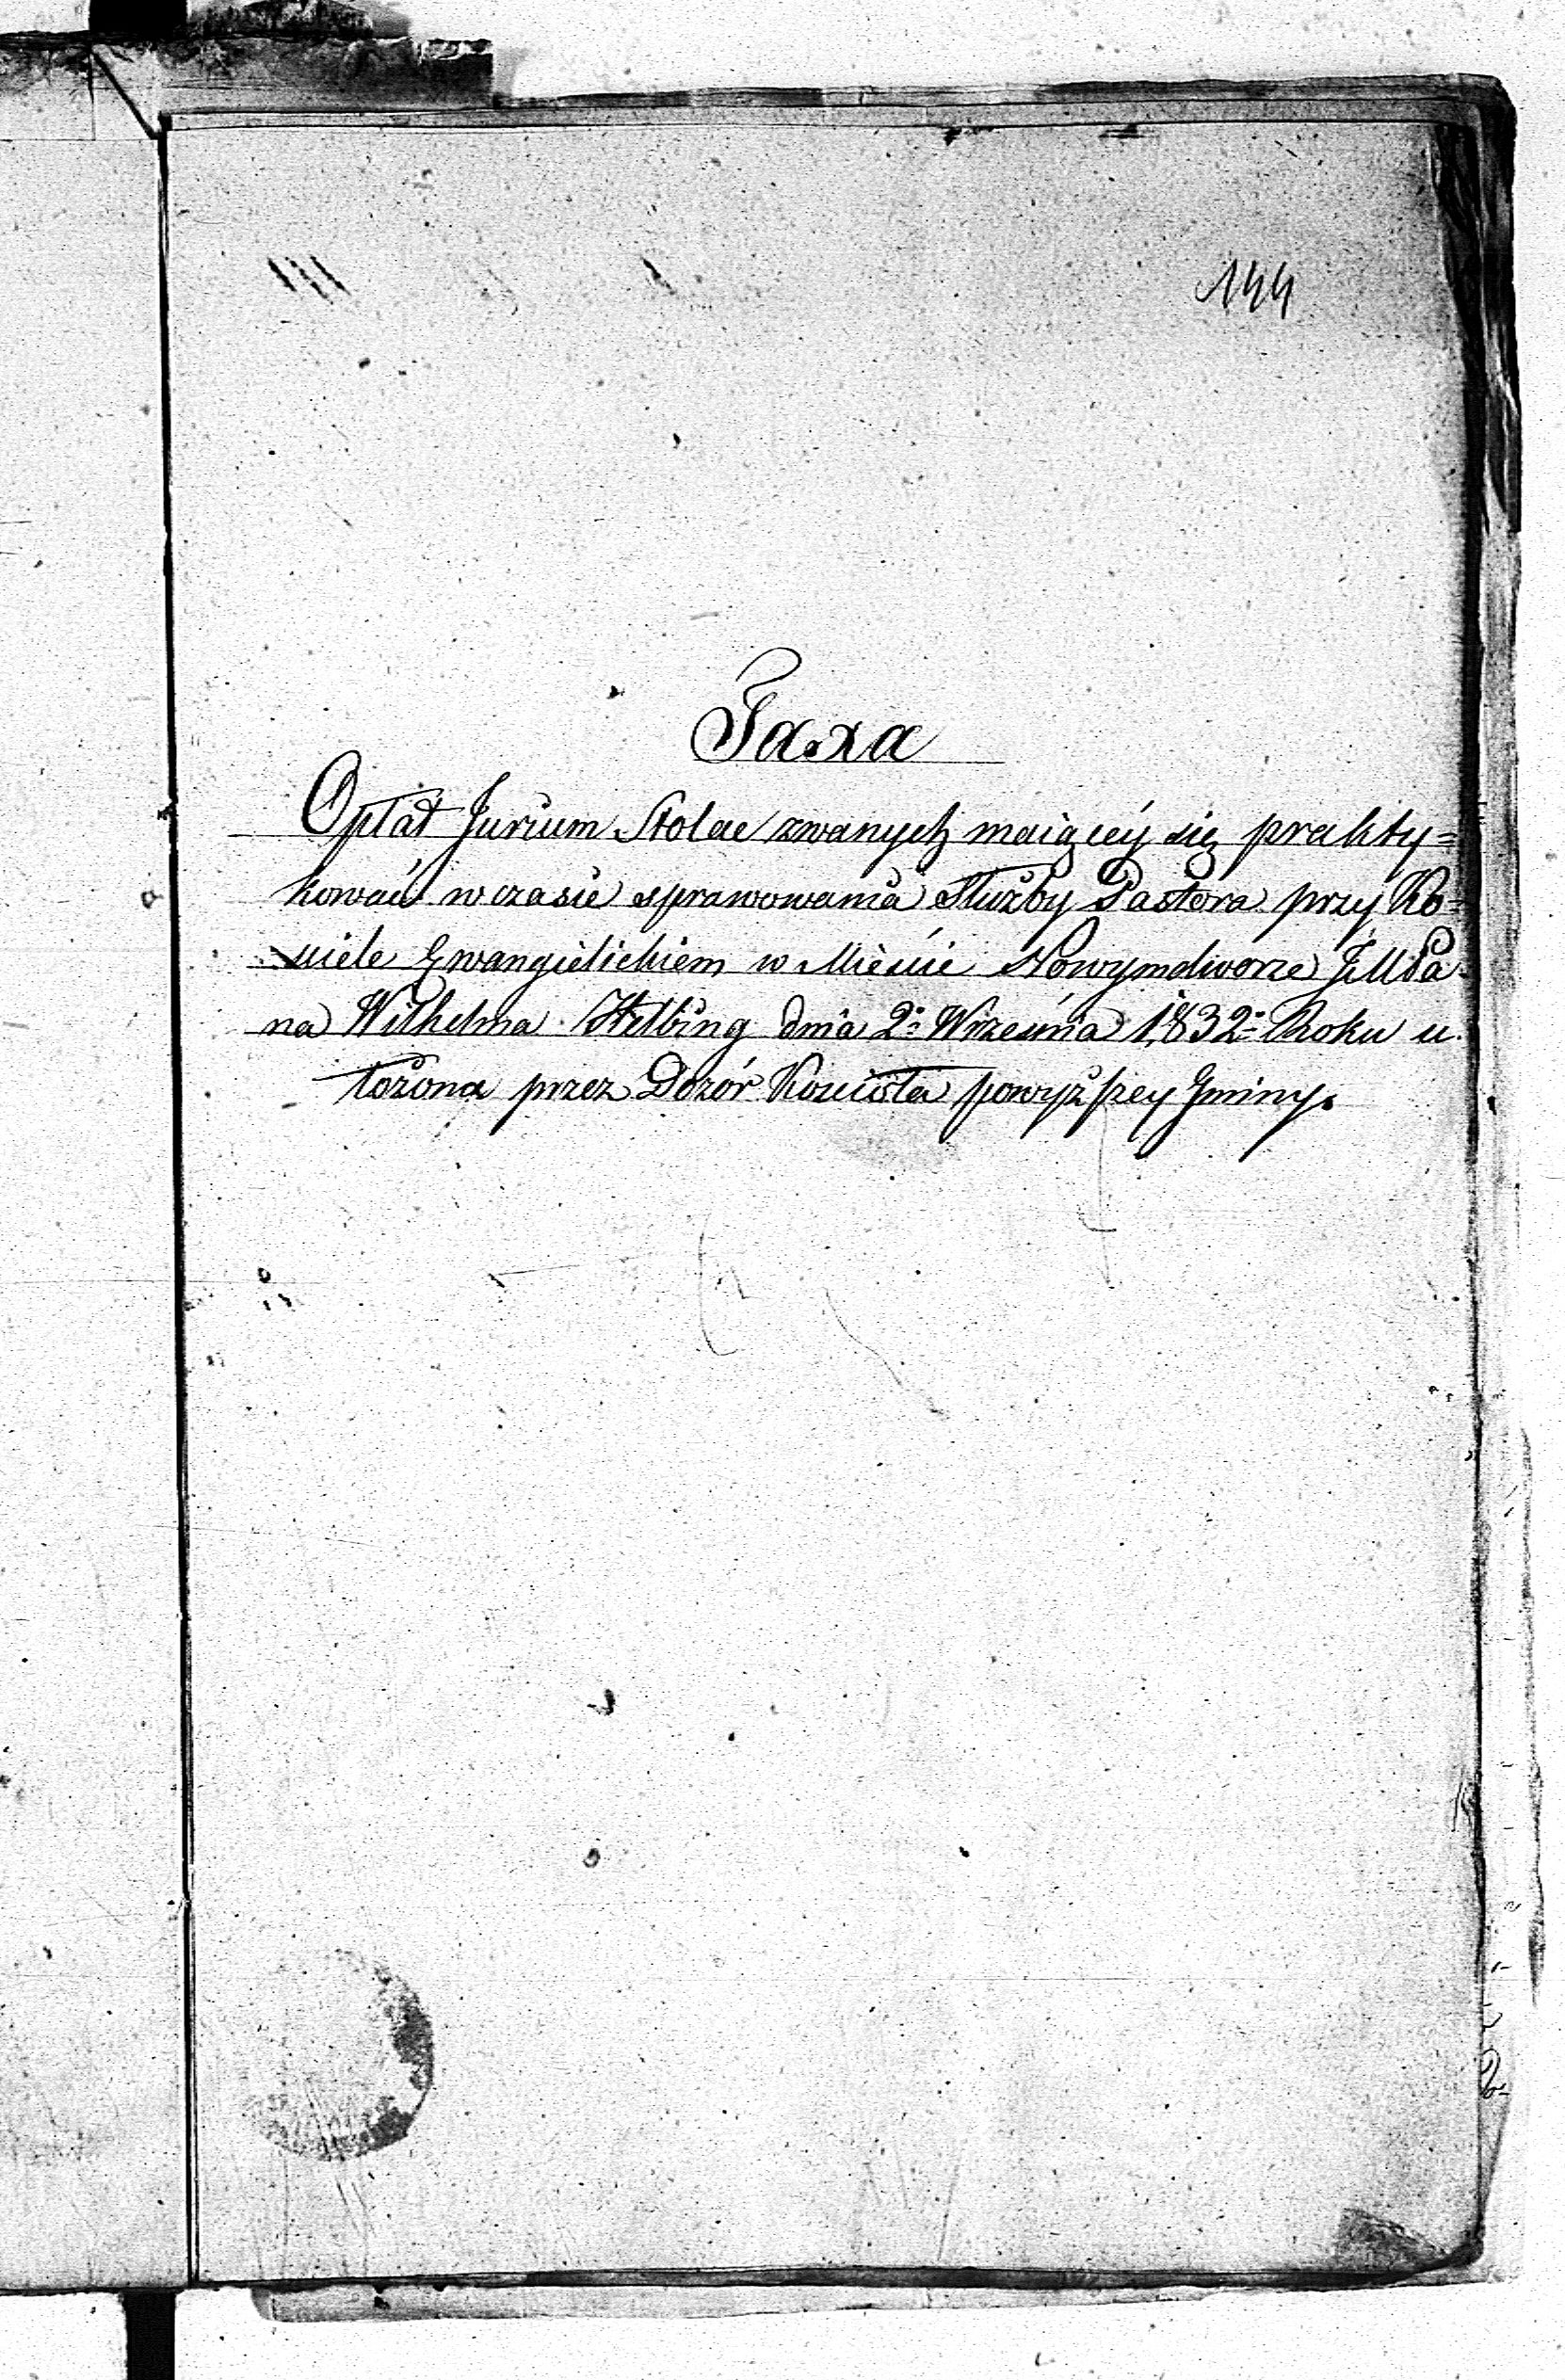 144
Taxa
Opłat Jurium Stolae zwanych maiącéy się prakty=
kować w czasie sprawowania Służby Pastora przy Ko=
sciele Ewangielickiem w Mieście Nowymdworze JMPa
na Wilhelma Helbing dnia 2º Września 1832º Roku u
łożona przez Dozór Kościoła powyższey Gminy.